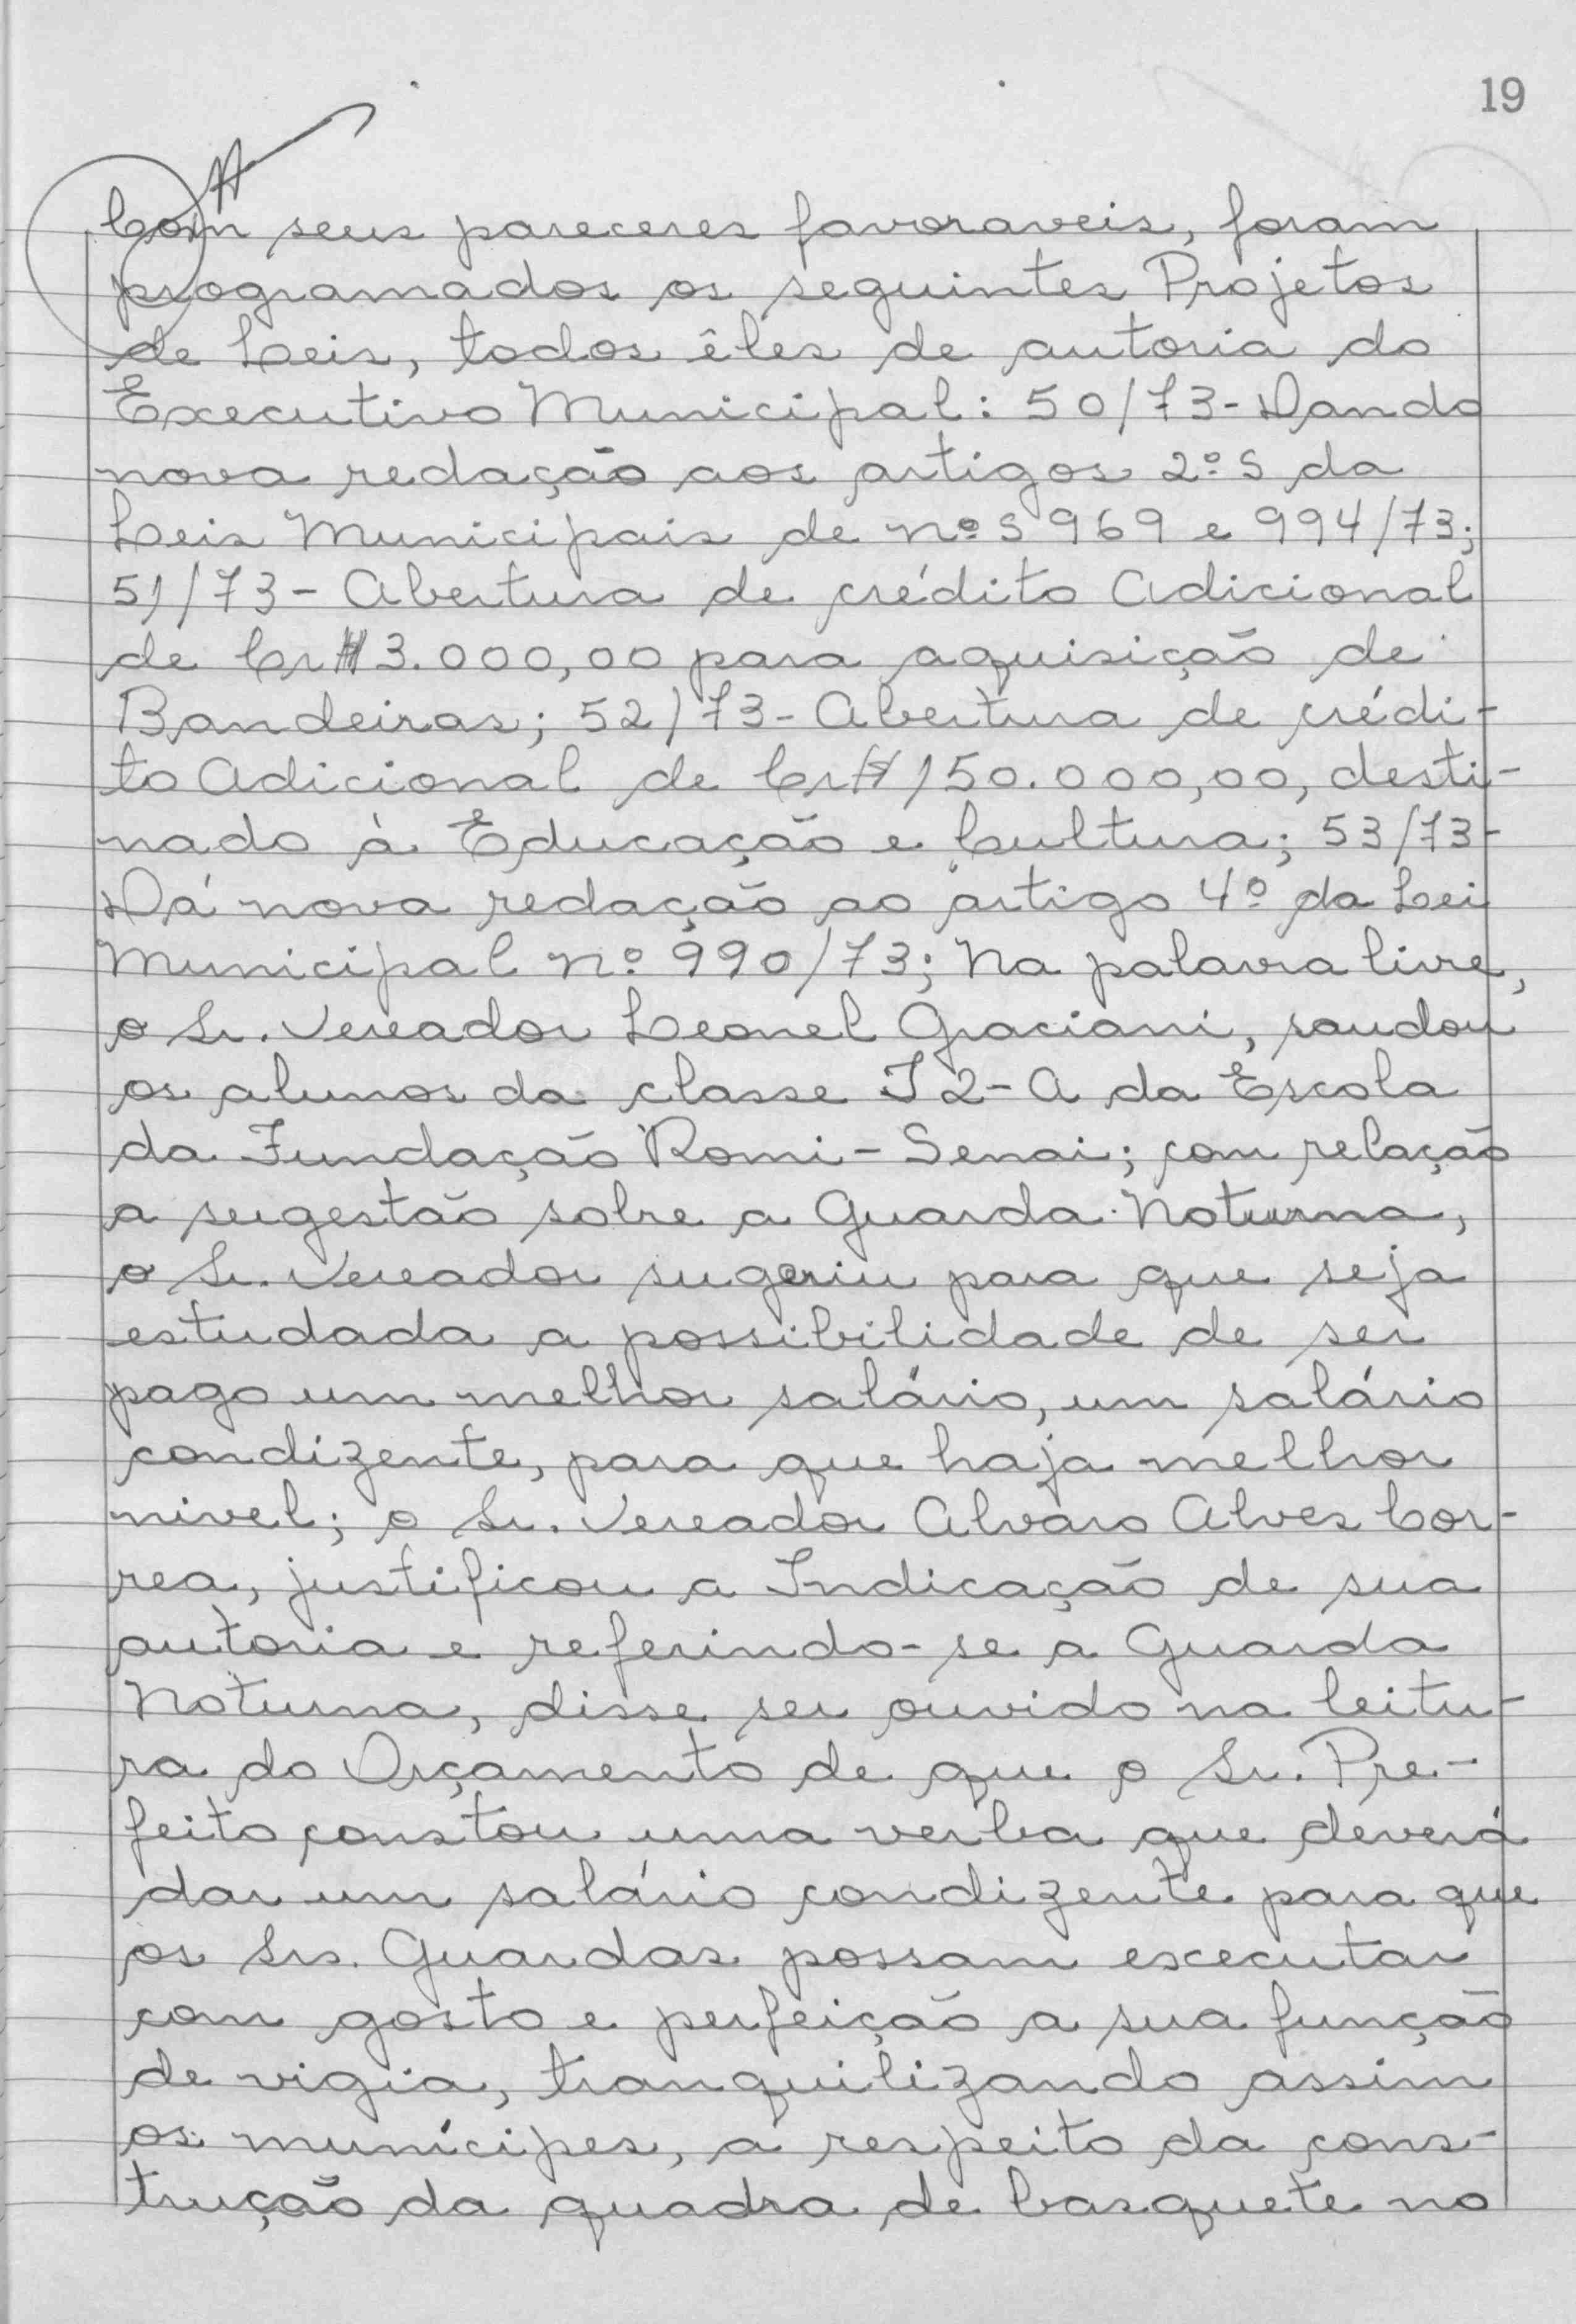 19
Com seus pareceres favoraveis, foram
programados os seguintes Projetos
de Leis, todos êles de autoria do
Executivo Municipal: 50/73 - Dando
nova redação aos artigos 2ºs da
Leis Municipais de nºs 969 e 994/73;
51/73 - Abertura de crédito Adicional
de Cr$ 3.000,00 para aquisição de
Bandeiras; 52/73 - Abertura de crédi-
to Adicional de Cr$ 150.000,00, desti-
nado à Educação e Cultura; 53/73 -
Dá nova redação ao artigo 4º da Lei
Municipal nº 990/73; Na palavra livre,
o Sr. Vereador Leonel Graciani, saudou
os alunos da classe I2-A da Escola
da Fundação Romi - Senai; com relação
a sugestão sobre a Guarda Noturna,
o Sr. Vereador sugeriu para que seja
estudada a possibilidade de ser
pago um melhor salário, um salário
condizente, para que haja melhor
nivel; o Sr. Vereador Alvaro Alves Cor-
rea, justificou a Indicação de sua
autoria e referindo-se a Guarda
Noturna, disse ser ouvido na leitu-
ra do Orçamento de que o Sr. Pre-
feito constou uma verba que deverá
dar um salário condizente para que
os Srs. Guardas possam executar
com gosto e perfeição a sua função
de vigia, tranquilizando assim
os munícipes, a respeito da cons-
trução da quadra de basquete no